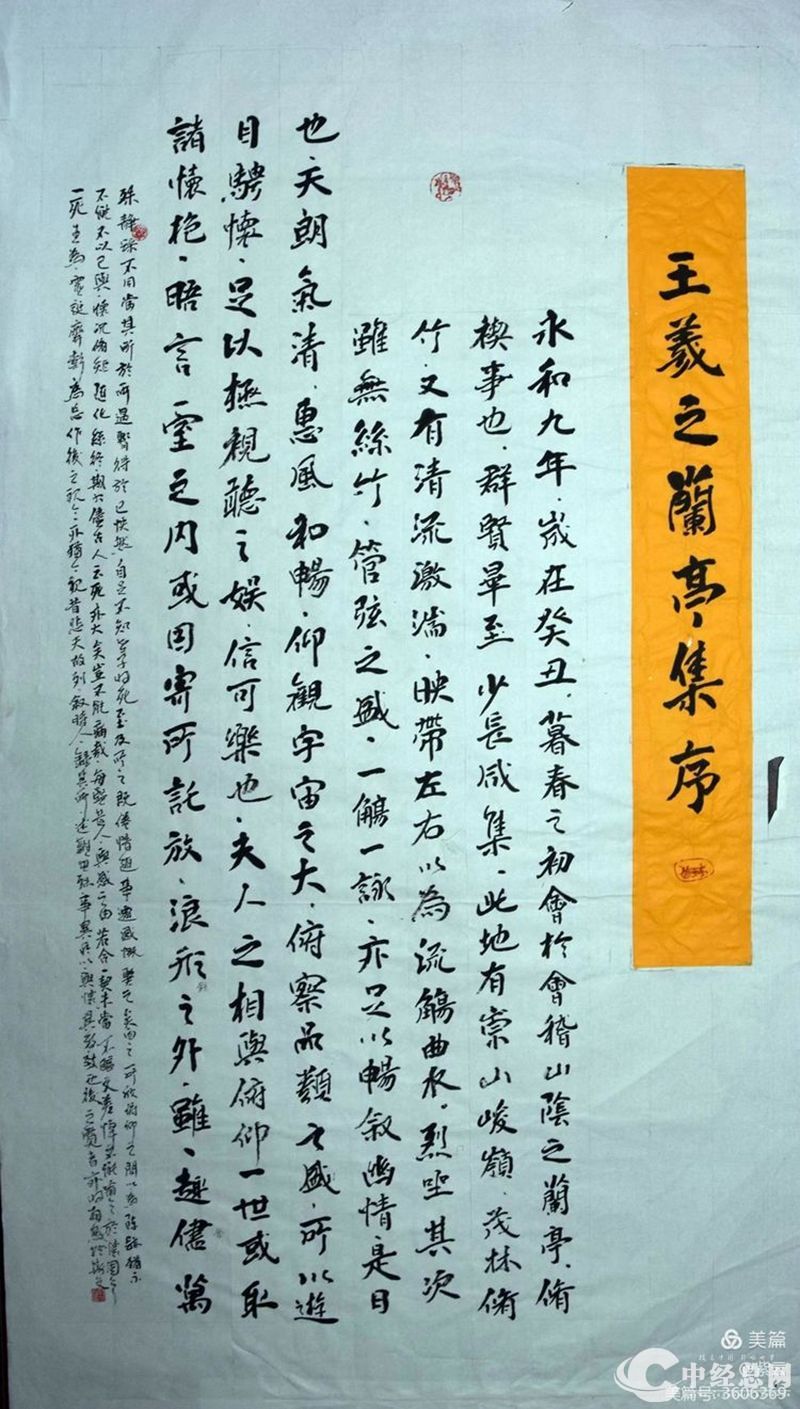 王羲之蘭亭集序
永和九年、歲在癸丑、暮春之初會於會稽山陰之蘭亭、脩
稧事也、群賢畢至、少長咸集、此地有崇山峻嶺、茂林脩
竹、又有清流激湍、映帶左右以為流觴曲水、烈坐其次
雖無絲竹、管弦之盛、一觴一詠、亦足以暢叙幽情、是日
也、天朗氣清、惠風和暢、仰觀宇宙之大、俯察品類之盛、所以遊
目騁懷、足以極視聽之娛、信可樂也、夫人之相與俯仰一世或取
諸懷抱、晤言一室之內或因寄所託放、浪形之外、雖、趣儘萬
殊静躁不同當其所於所遇暫得於己怏然自足不知 死 及 之既倦情 事遷感慨
不能不以 興懷況脩短隨化終 期 古人 死 大矣豈不 痛哉、每 昔人、興感之由若合一契未嘗不 文
後之視今、亦猶今視昔悲夫故列、叙時人、錄其所述雖世殊事異所以興懷其 後之 者亦 有感於斯文
美篇
中经总网
美篇号: 3606369